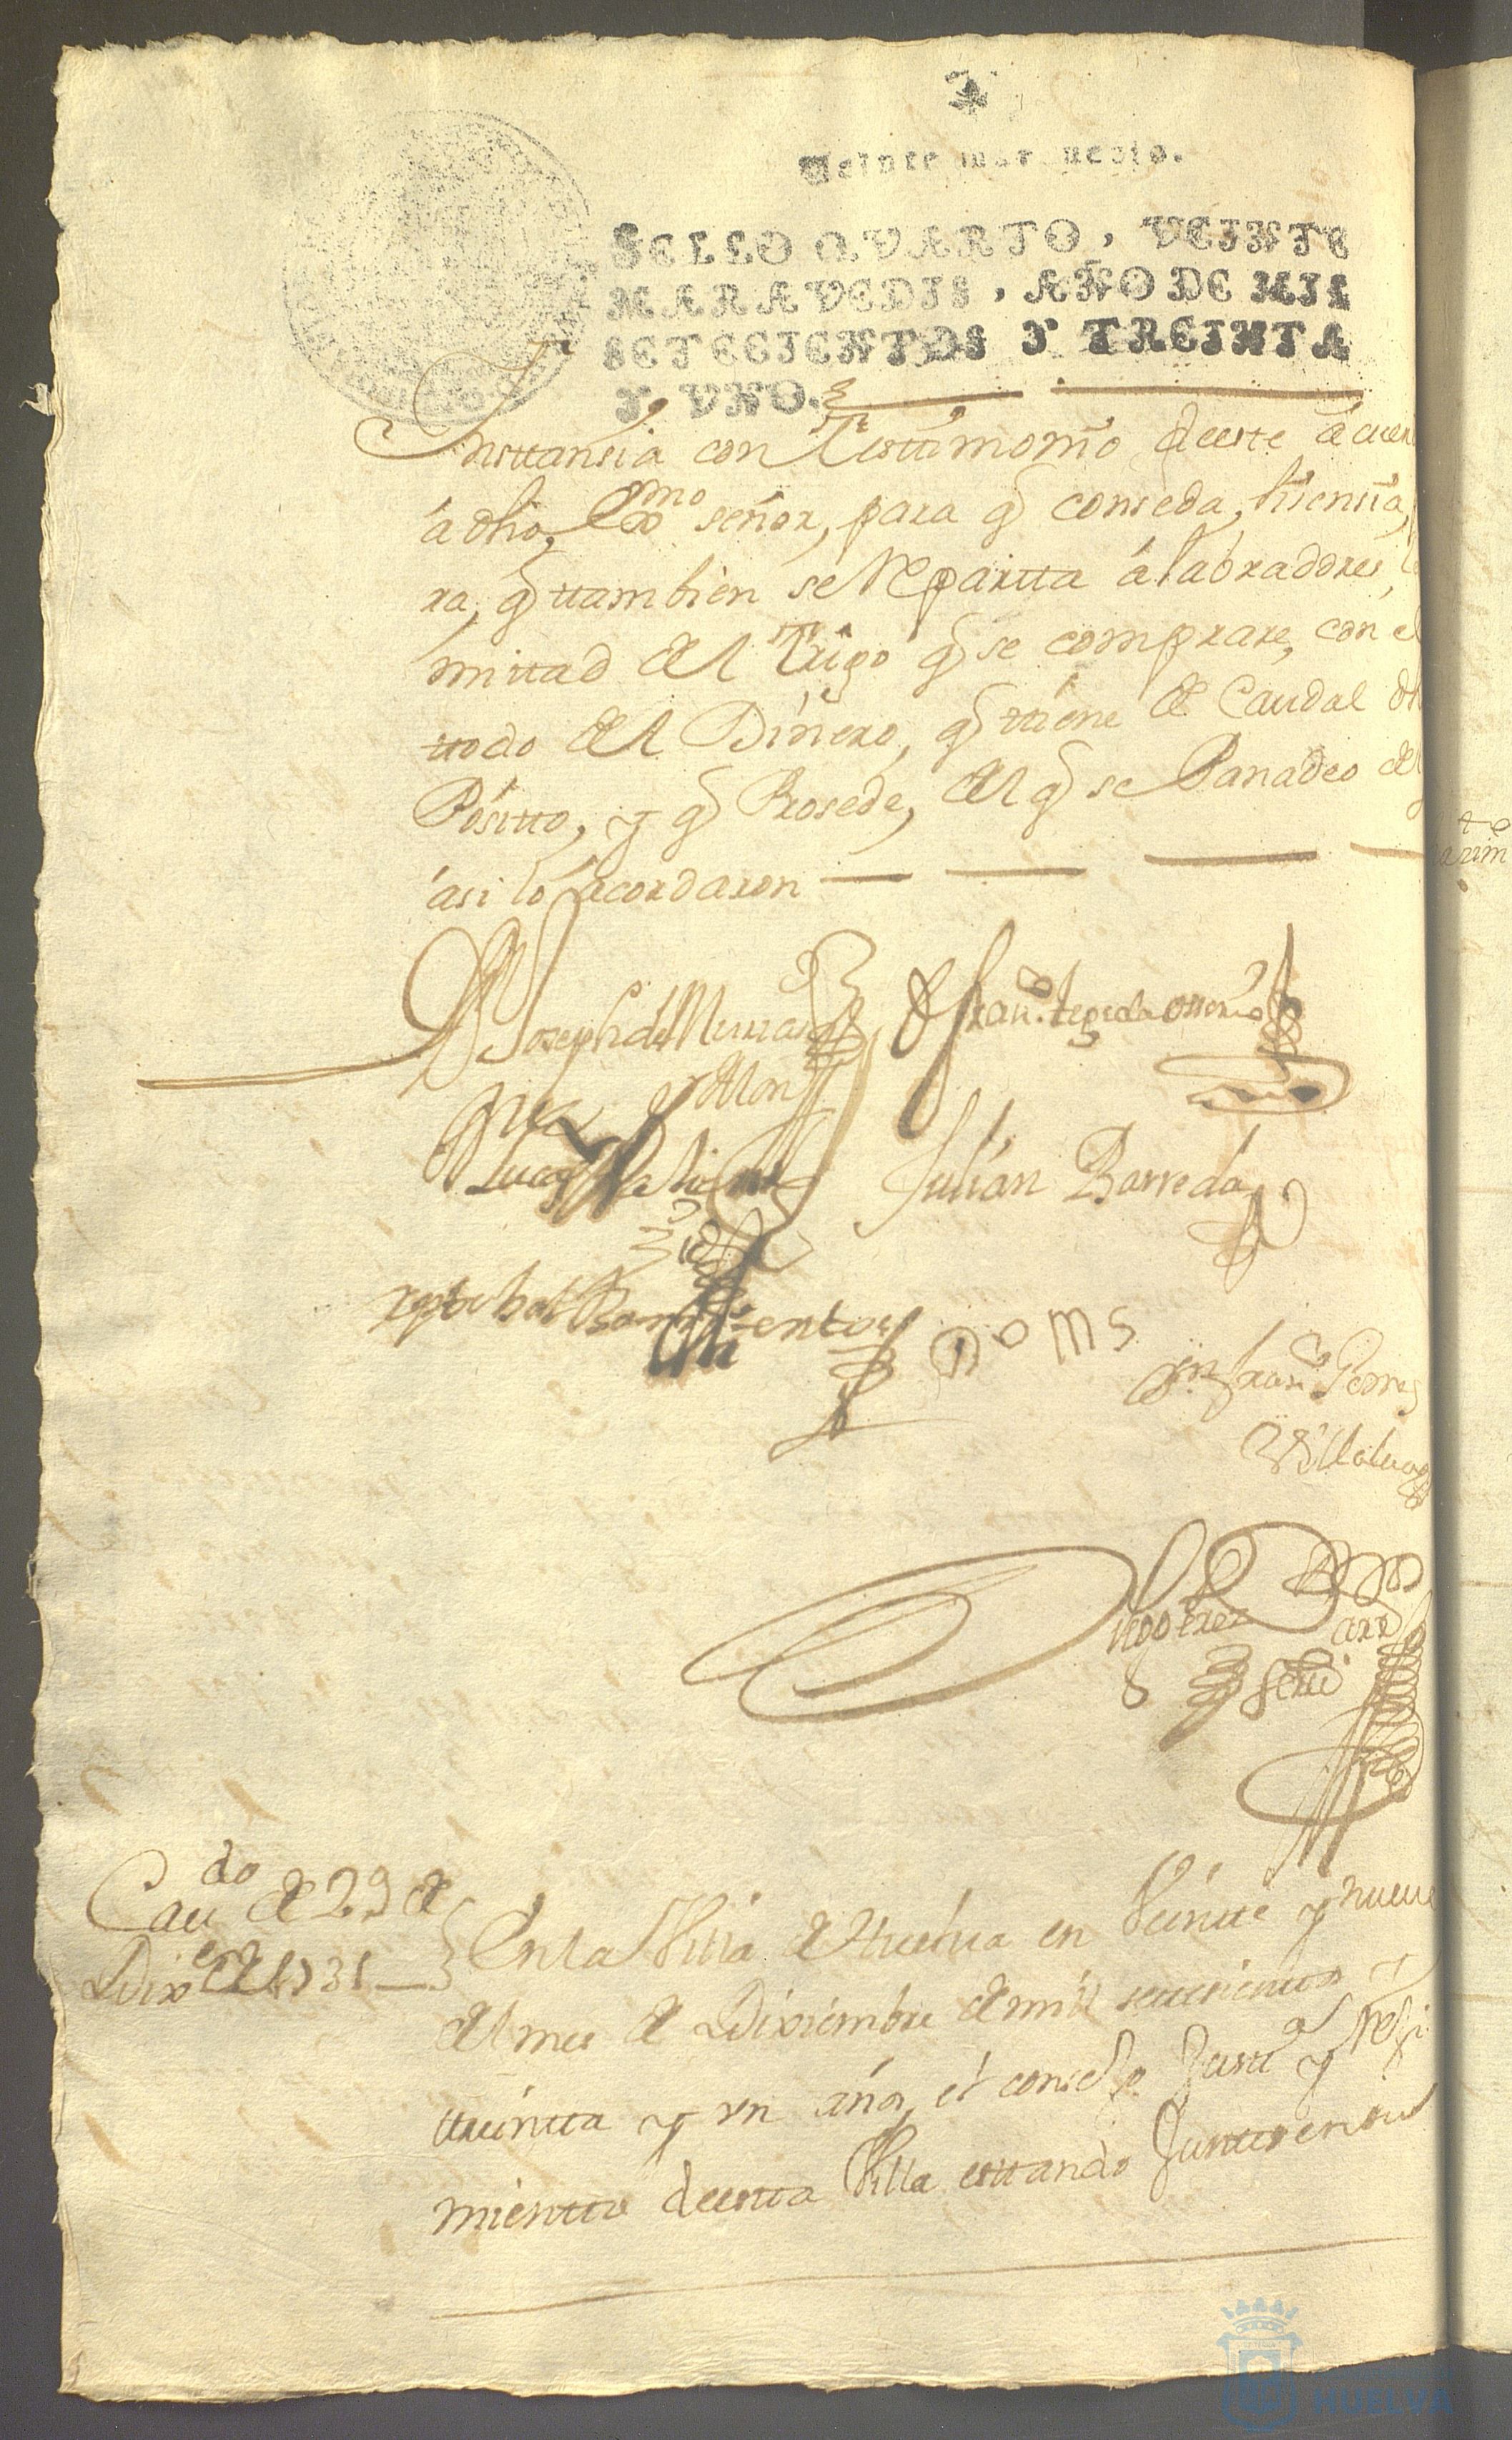 Veinte marauedis.
SELLO QVARTO, VEINTE
MARAVEDIS, AÑO DE MIL
SETECIENTOS Y TREINTA
Y VNO.
Insttansia con Testtimonio deeste acuer
á dho, Exmo señor, para q conseda, lisensia,
ra, q ttambien se Repartta á labradores, la
mittad del Trigo q se comprare, con el
ttodo del Dinero, q ttiene de Caudal dh
Pósitto, y q Prosede, del q se Panadeo del
ási lo acordaron
Joseph de
Fran.co tegeda
Lucas
Julián Barreda
Barrientos
D O M S
Fran.co Gomes
Villalua
Diego Perez
Cau.do de 29 de
Dix.e de 1731
En la Villa de Huelua en Veintte y nueue
del mes de Diziembre de mill settesienttos y
treintta y un años, el consejo Justt.a y Reji
mientto deestta Villa esttando Juntos en su
HUELVA